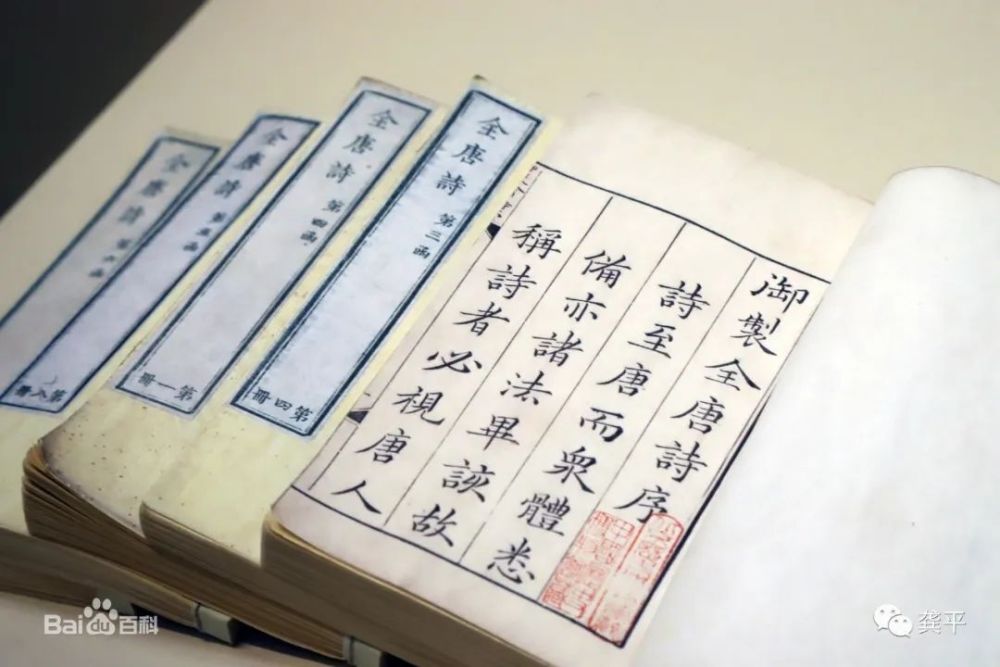 御製全唐詩序
詩至唐而衆體悉
備亦諸法畢該故
稱詩者必視唐人
全唐詩 第三函
第四冊
全唐詩 第四函
第一冊
全唐詩 第五函
全唐詩 第六函
第八冊
Baidu百科
龚平